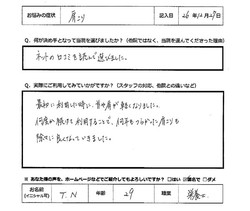 お悩みの症状 肩こり 記入日 26年12月29日
Q. 何が決め手となって当院を選びましたか？(他院ではなく、当院を選んでくださった理由)
ネットの口コミを読んで選びました。
Q. 実際にご利用してみていかがですか？(スタッフの対応、他院との違いなど)
最初に利用した時に、首や肩が軽くなりました。
何度か続けて利用することで、何年もつらかった肩こりも
除々に良くなってきました。
※ あなた様の声を、ホームページなどでご紹介してもよろしいですか？ □はい □匿名で □ダメ
お名前 (イニシャル可) T.N 年齢 29 職業 栄養士